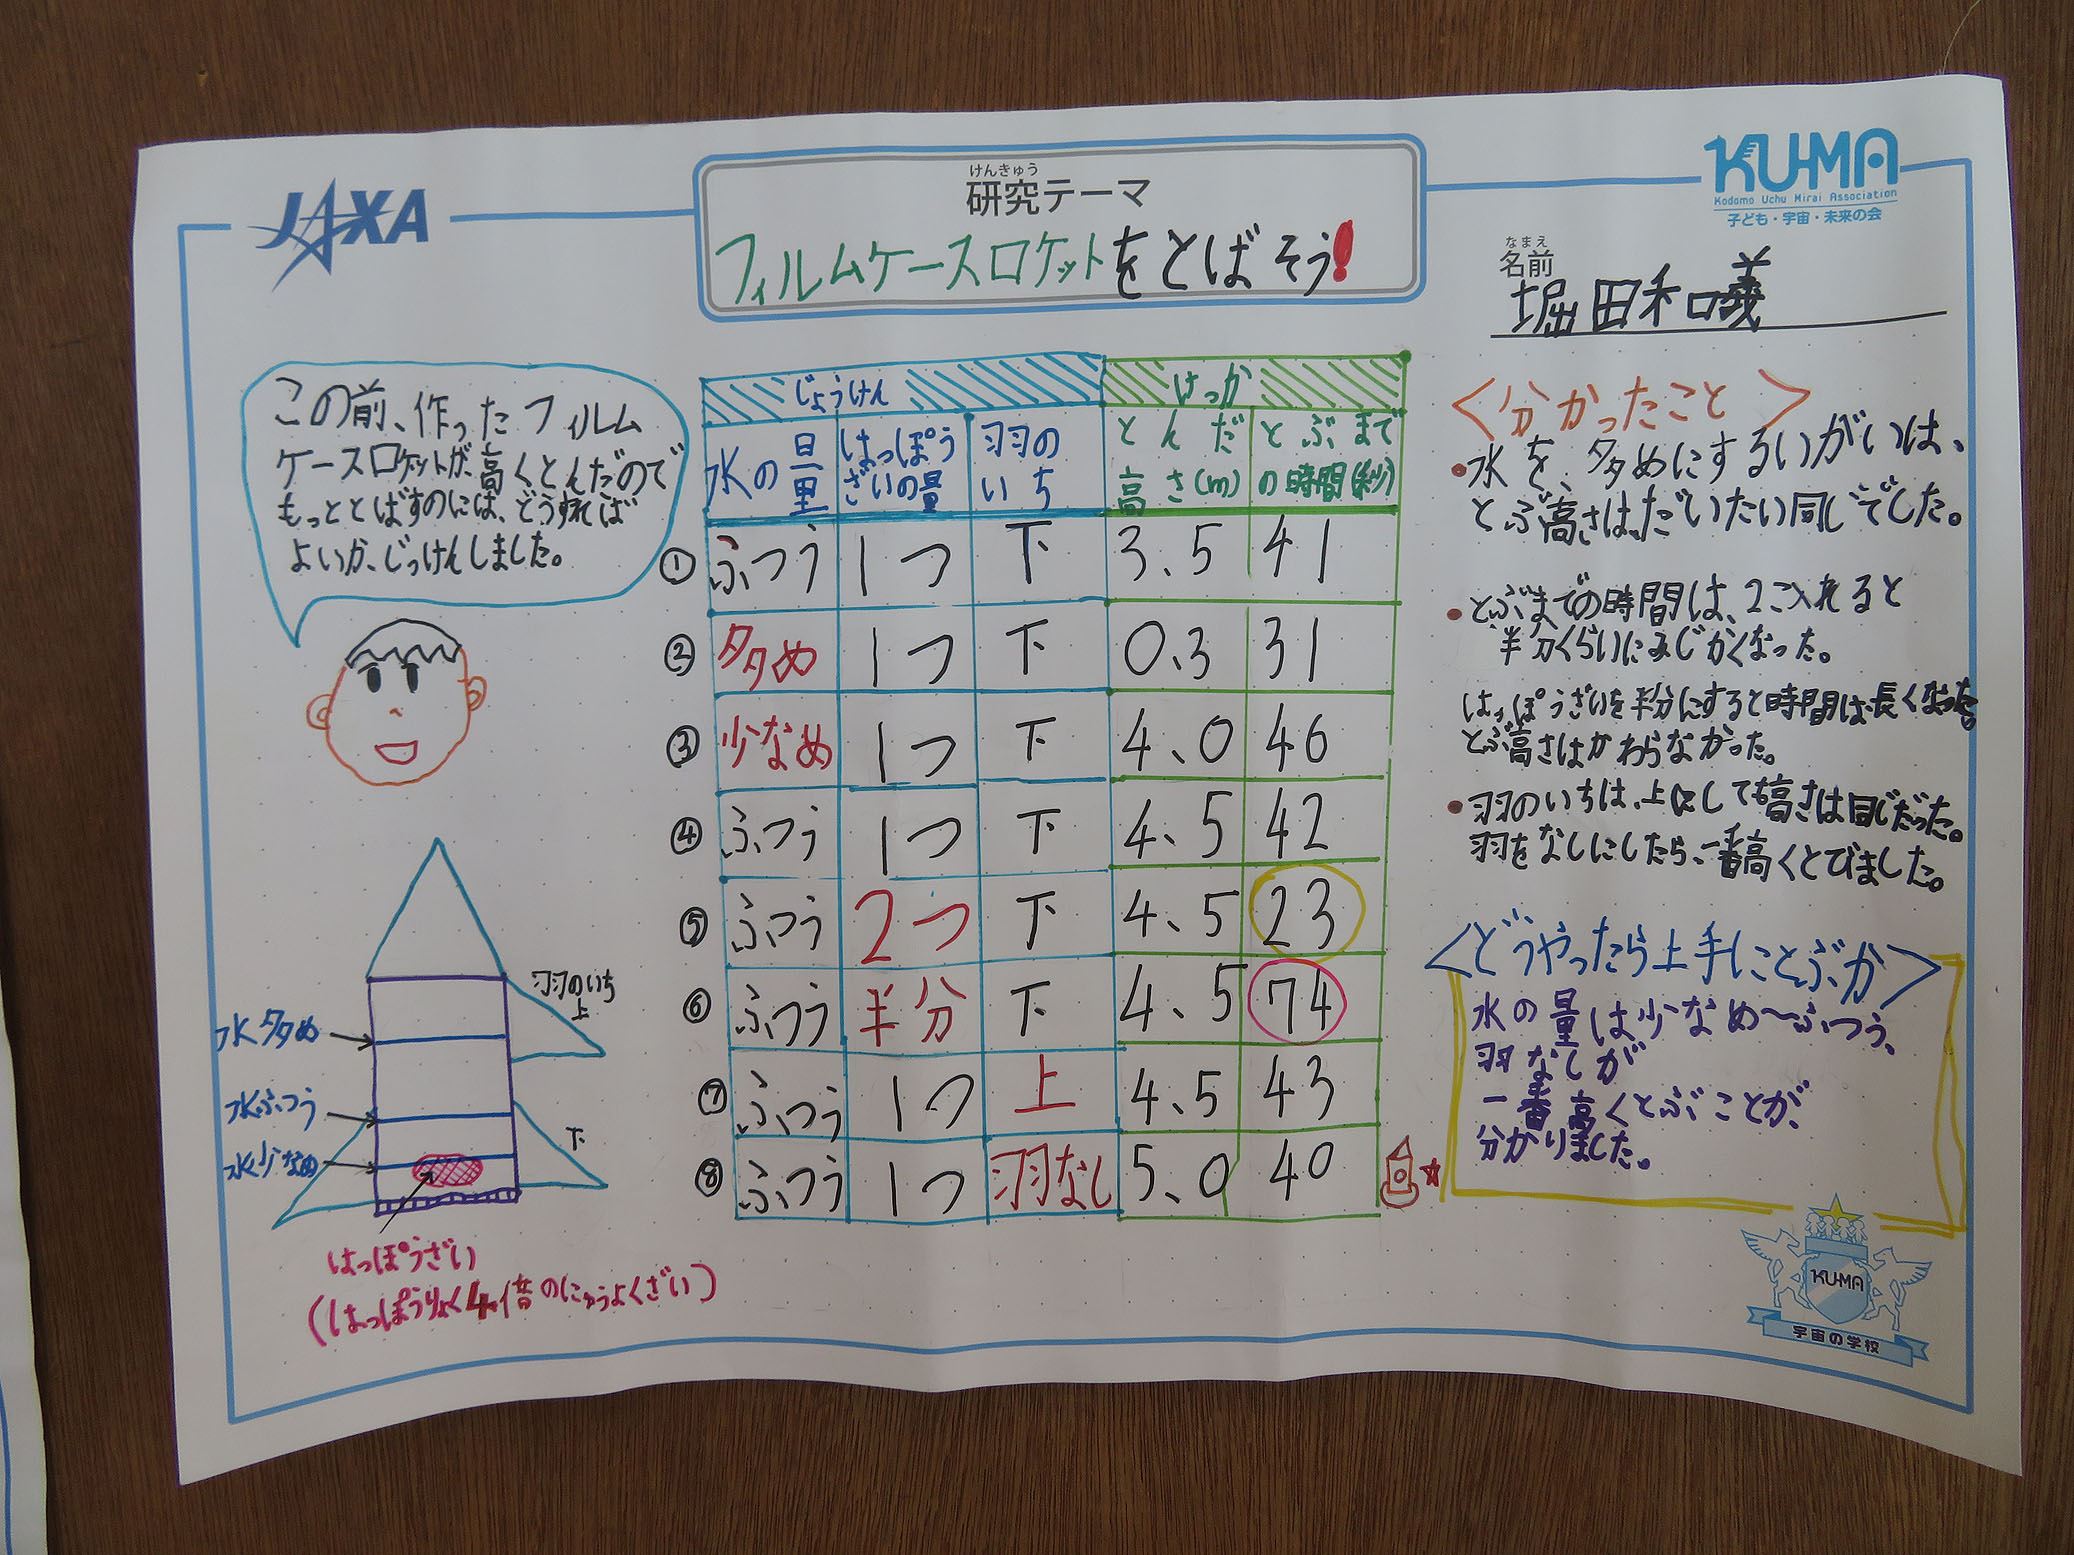 JAXA
けんきゅう
研究テーマ
フィルムケースロケットをとばそう!
KU-MA
Kodomo Uchu Mirai Association
子ども・宇宙・未来の会
なまえ
名前
堀田和義
この前、作ったフィルム
ケースロケットが、高くとんだので
もっととばすのには、どうすれば
よいか、じっけんしました。
じょうけん けっか
水の量 はっぽうざいの量 羽のいち とんだ高さ(m) とぶまでの時間(秒)
① ふつう 1つ 下 3.5 41
② 多め 1つ 下 0.3 31
③ 少なめ 1つ 下 4.0 46
④ ふつう 1つ 下 4.5 42
⑤ ふつう 2つ 下 4.5 23
⑥ ふつう 半分 下 4.5 74
⑦ ふつう 1つ 上 4.5 43
⑧ ふつう 1つ 羽なし 5.0 40
羽のいち
上
水多め
水ふつう
下
水少なめ
はっぽうざい
(はっぽうりょく4倍のにゅうよくざい)
<分かったこと>
・水を、多めにするいがいは、
とぶ高さは、だいたい同じでした。
・とぶまでの時間は、2こ入れると
半分くらいにみじかくなった。
はっぽうざいを半分にすると時間は長くなった。
とぶ高さはかわらなかった。
・羽のいちは、上にしても高さは同じだった。
羽をなしにしたら、一番高くとびました。
<どうやったら上手にとぶか>
水の量は少なめ〜ふつう、
羽なしが
一番高くとぶことが、
分かりました。
KU-MA
宇宙の学校